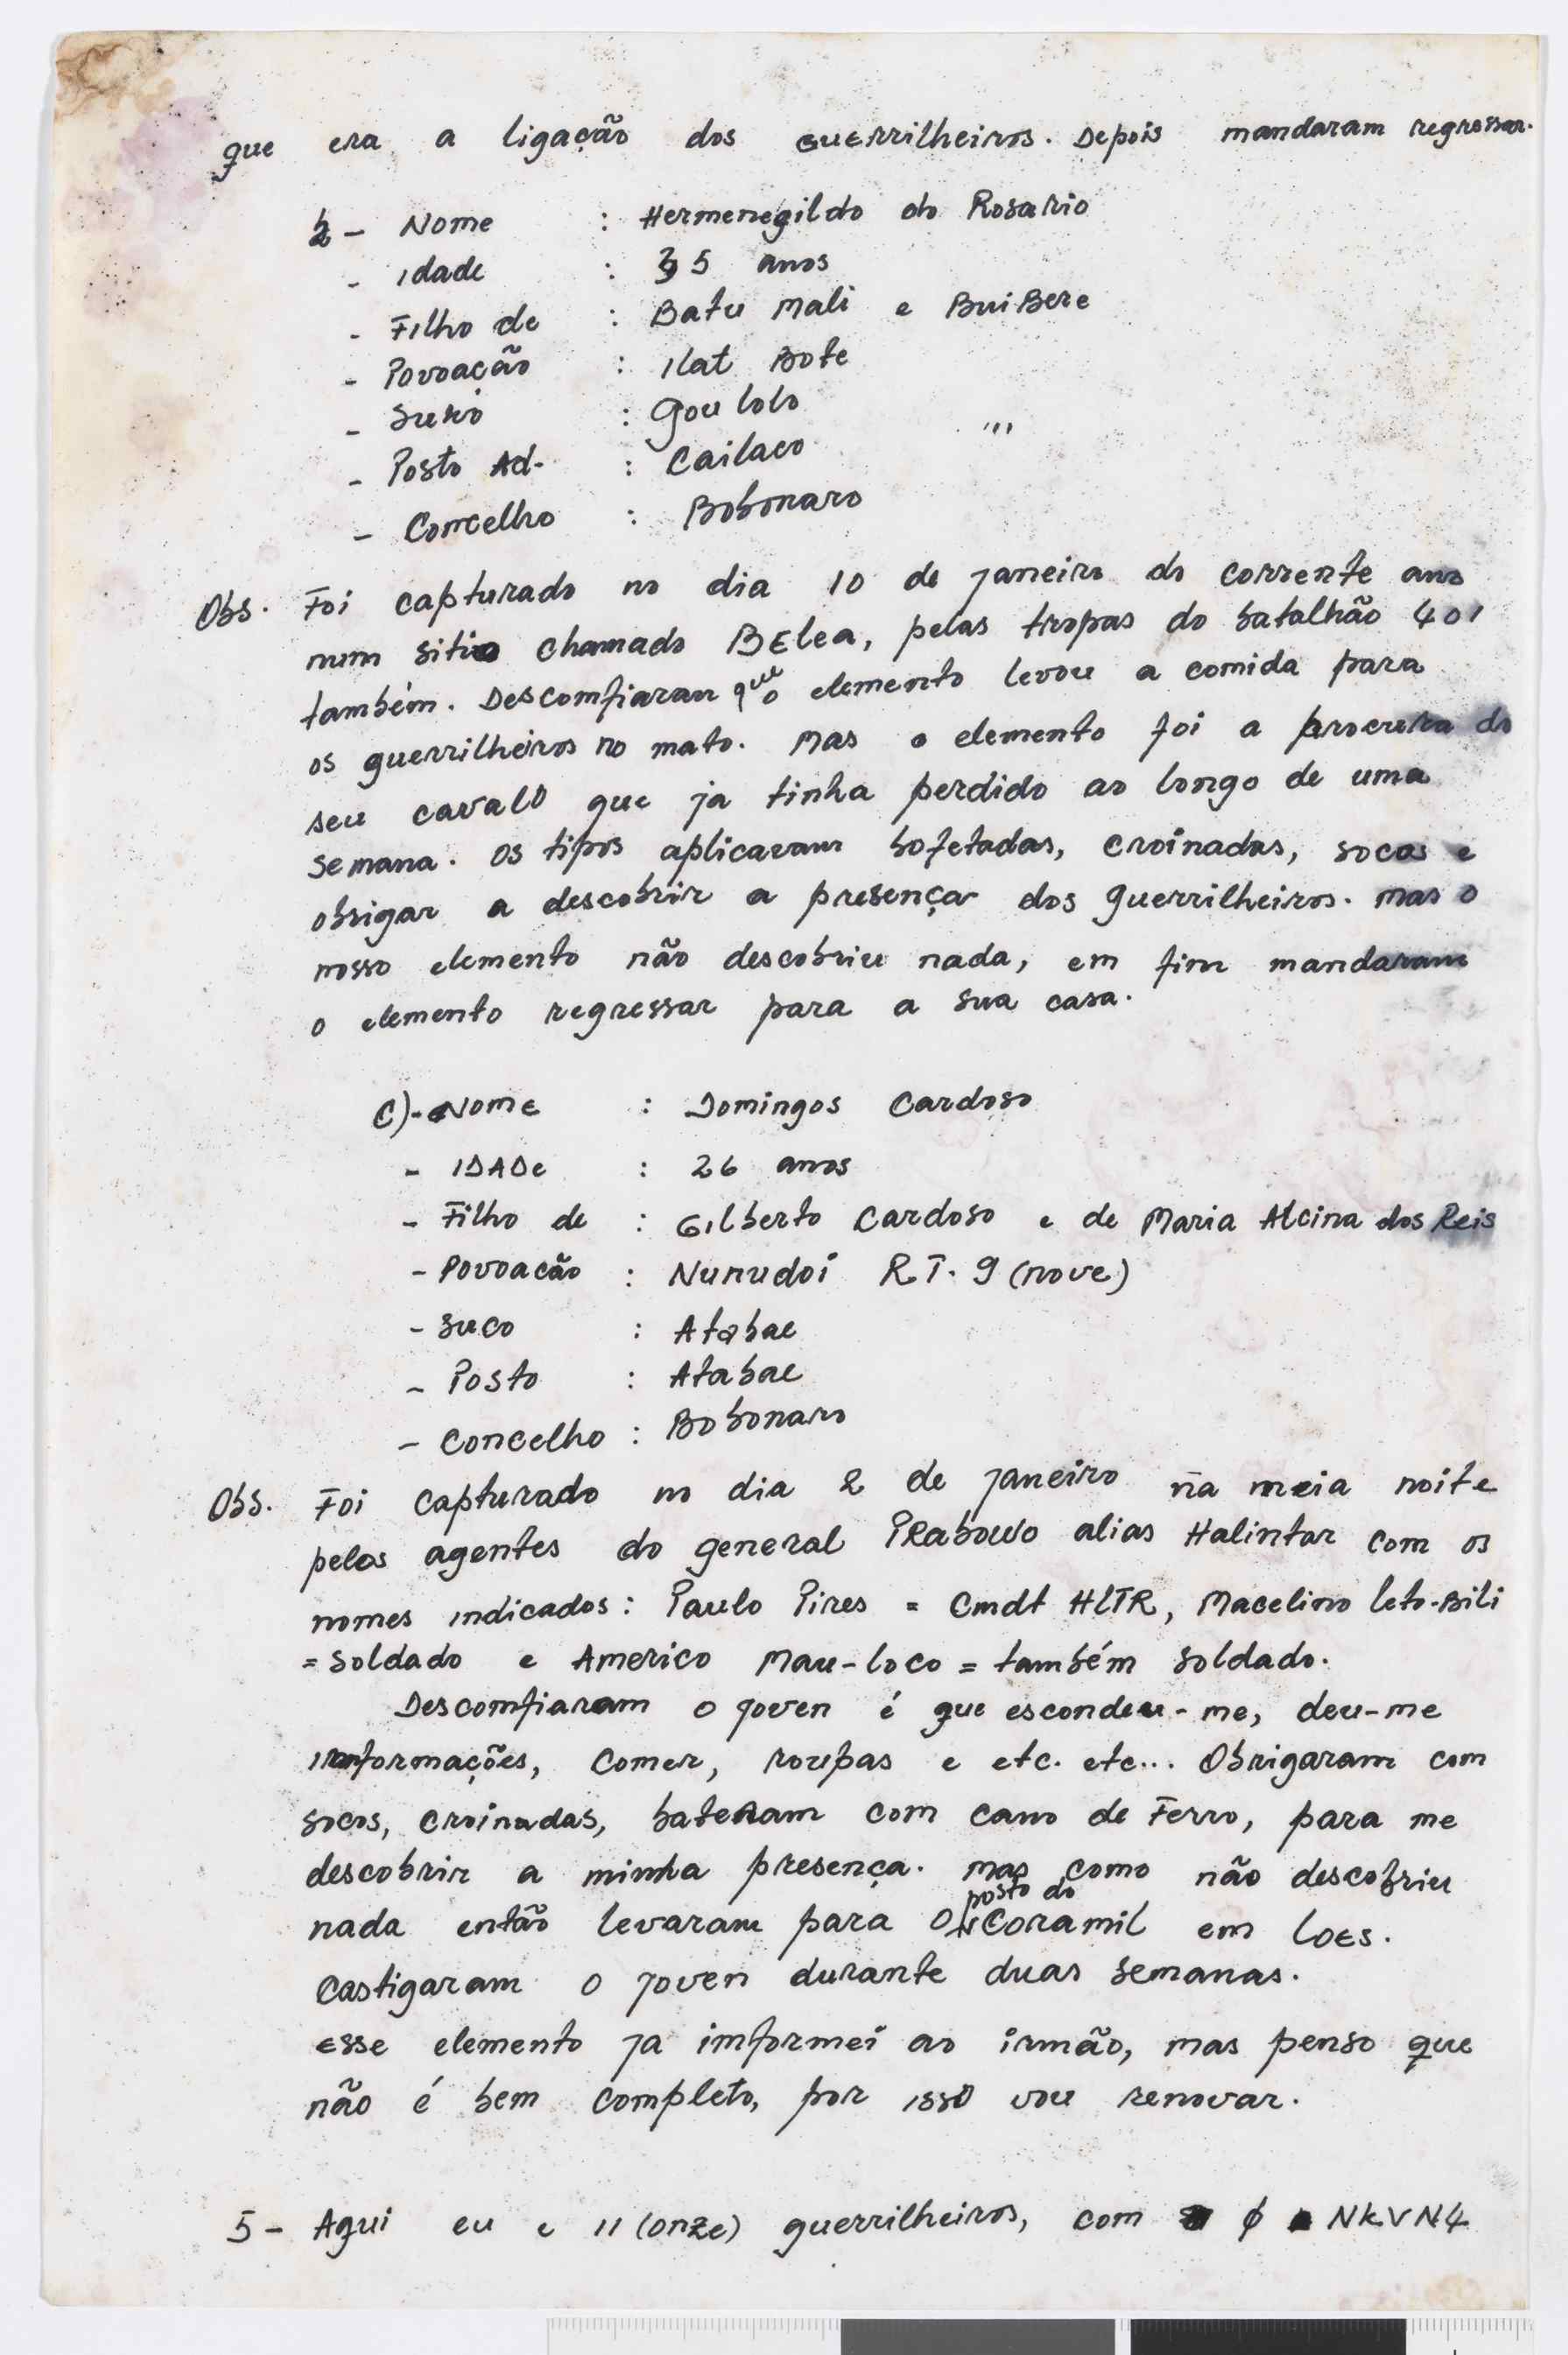 que era a ligação dos guerrilheiros. Depois mandaram regressar.
2 - Nome : Hermenegildo do Rosario
- Idade : 35 anos
- Filho de : Batu Mali e Bui Bere
- Povoação : Ilat Bote
- Suko : Goulolo
"'
- Posto Ad- : Cailaco
- Concelho : Bobonaro
Obs. Foi capturado no dia 10 de janeiro do corrente ano
num sitio chamado BElea, pelas tropas do batalhão 401
também. Descomfiaram que o elemento levou a comida para
os guerrilheiros no mato. Mas o elemento foi a procura do
seu cavalo que ja tinha perdido ao longo de uma
semana. Os tipos aplicaram bofetadas, croinadas, socos e
obrigar a descobrir a presença dos guerrilheiros. Mas o
nosso elemento não descobriu nada, em fim mandaram
o elemento regressar para a sua casa.
C)- Nome : Domingos Cardoso
- IDADe : 26 anos
- Filho de : Gilberto Cardoso e de Maria Alcina dos Reis
- Povoacão : Nunudoi RT. 9 (nove)
- Suco : Atabae
- Posto : Atabae
- Concelho : Bobonaro
Obs. Foi capturado no dia 2 de janeiro na meia noite
pelos agentes do general PRabowo alias Halintar com os
nomes indicados: Paulo Pires = Cmdt HLTR, Macelino Leto-Bili
= soldado e Americo Mau-loco = também soldado.
Descomfiaram o joven é que escondeu-me, deu-me
informações, comer, roupas e etc. etc... Obrigaram com
socos, croinadas, bateram com cano de Ferro, para me
descobrir a minha presença. mas como não descobriu
nada então levaram para o posto do Coramil em Loes.
Castigaram o joven durante duas semanas.
Esse elemento ja imformei ao irmão, mas penso que
não é bem completo, por isso vou renovar.
5 - Aqui eu e 11 (onze) guerrilheiros, com ϕ NKVN4